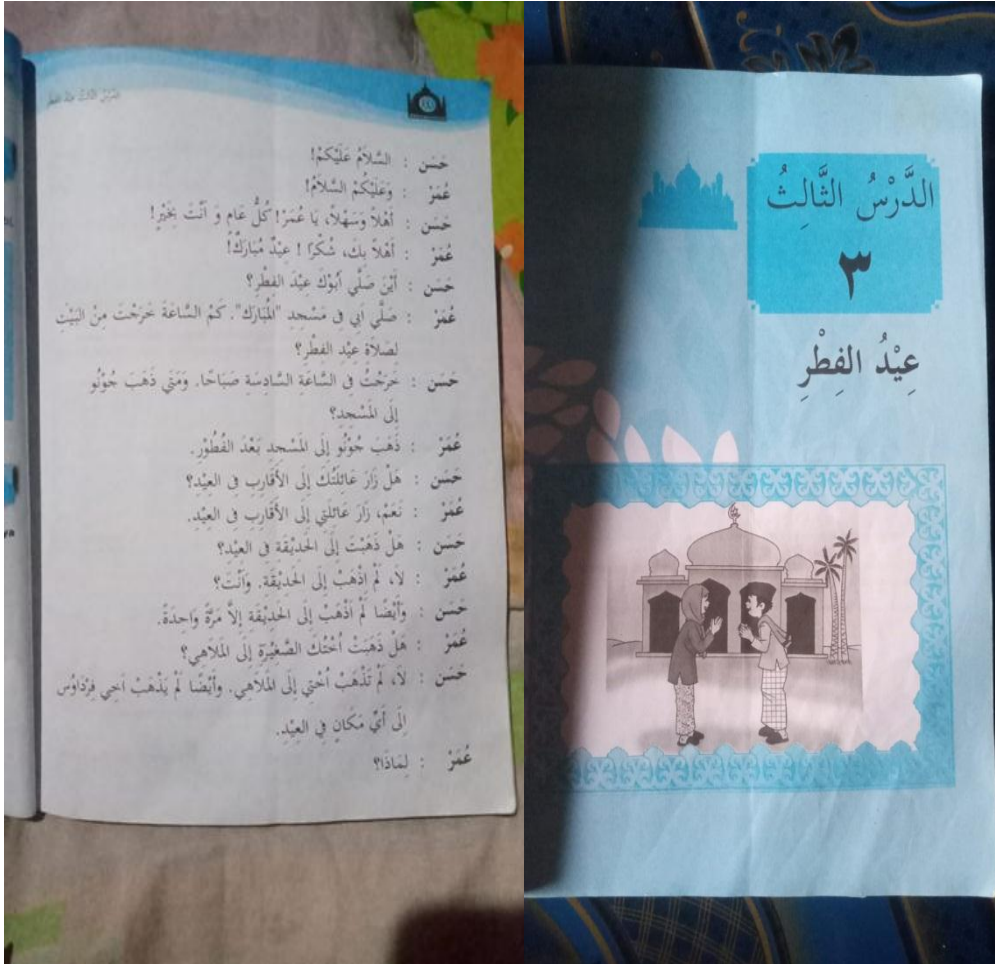 الدرس الثالث عيد الفطر
حَسَن : السَّلاَمُ عَلَيْكُمْ!
عُمَرْ : وَعَلَيْكُمُ السَّلاَمُ!
حَسَن : أَهْلاً وَسَهْلاً، يَا عُمَرْ! كُلُّ عَامٍ وَ اَنْتَ بِخَيْرٍ!
عُمَرْ : أَهْلاً بِكَ، شُكْرًا ! عِيْدٌ مُبَارَكٌ!
حَسَن : أَيْنَ صَلَّي أَبُوْكَ عِيْدَ الفِطْرِ؟
عُمَرْ : صَلَّي ابي فى مَسْجِدِ "المُبَارَك". كَمْ السَّاعَةَ خَرَجْتَ مِنْ البَيْتِ
لِصَلاَةِ عِيْدِ الفِطْرِ؟
حَسَن : خَرَجْتُ فِى السَّاعَةِ السَّادِسَةِ صَبَاحًا. وَمَتَي ذَهَبَ جُوْنُو
إِلَى المَسْجِدِ؟
عُمَرْ : ذَهَبَ جُوْنُو إِلَى المَسْجِدِ بَعْدَ الفُطُوْرِ.
حَسَن : هَلْ زَارَ عَائِلَتُكَ إِلَى الأَقَارِبِ فِى العِيْدِ؟
عُمَرْ : نَعَمْ، زَارَ عَائِلَتِي إِلَى الأَقَارِبِ فِى العِيْدِ.
حَسَن : هَلْ ذَهَبْتَ إِلَى الحَدِيْقَةِ فِى العِيْدِ؟
عُمَرْ : لاَ، لَمْ اِذْهَبْ إِلَى الحَدِيْقَة. وَأَنْتَ؟
حَسَن : وَأَيْضًا لَمْ اَذْهَبْ إِلَى الحَدِيْقَةِ إِلاَّ مَرَّةً وَاحِدَةً.
عُمَرْ : هَلْ ذَهَبَتْ اُخْتُكَ الصَّغِيْرَةِ إِلَى المَلاَهِي؟
حَسَن : لاَ، لَمْ تَذْهَبْ اُخْتِي إِلَى المَلاَهِي. وَأَيْضًا لَمْ يَذْهَبْ اَخِي فِرْدَاوُس
اِلَى أَيِّ مَكَانٍ فِي العِيْدِ.
عُمَرْ : لِمَاذَا؟
ya
الدَّرْسُ الثَّالِثُ
٣
عِيْدُ الفِطْرِ